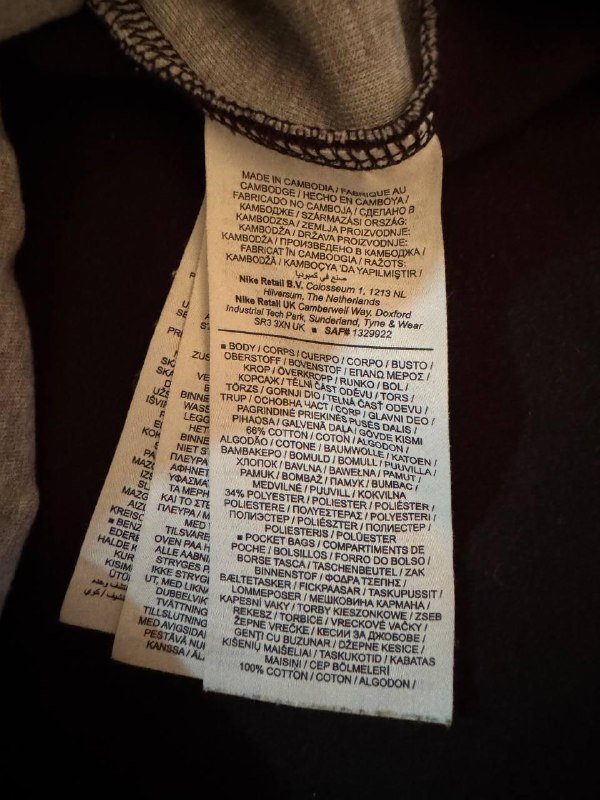 MADE IN CAMBODIA / FABRIQUE AU
CAMBODGE / HECHO EN CAMBOYA /
FABRICADO NO CAMBOJA / СДЕЛАНО В
КАМБОДЖЕ / SZÁRMAZÁSI ORSZÁG:
KAMBODZSA / ZEMLJA PROIZVODNJE:
KAMBODŽA / DRŽAVA PROIZVODNJE:
KAMBODŽA / ПРОИЗВЕДЕНО В КАМБОДЖА /
FABRICAT ÎN CAMBODGIA / RAŽOTS:
KAMBODŽĀ / KAMBOÇYA 'DA YAPILMIŞTIR /
صنع في كمبوديا
Nike Retail B.V. Colosseum 1, 1213 NL
Hilversum, The Netherlands
Nike Retail UK Camberwell Way, Doxford
Industrial Tech Park, Sunderland, Tyne & Wear
SR3 3XN UK ■ SAF# 1329922
■ BODY / CORPS / CUERPO / CORPO / BUSTO /
OBERSTOFF / BOVENSTOF / ΕΠΑΝΩ ΜΕΡΟΣ /
KROP / ÖVERKROPP / RUNKO / BOL /
КОРСАЖ / TĚLNÍ ČÁST ODĚVU / TORS /
TÖRZS / GORNJI DIO / TELNÁ ČASŤ ODEVU /
TRUP / ОСНОВНА ЧАСТ / CORP / GLAVNI DEO /
PAGRINDINĖ PRIEKINĖS PUSĖS DALIS /
PIHAOSA / GALVENĀ DAĻA / GÖVDE KISMI
66% COTTON / COTON / ALGODÓN /
ALGODÃO / COTONE / BAUMWOLLE / KATOEN /
ΒΑΜΒΑΚΕΡΟ / BOMULD / BOMULL / PUUVILLA /
ХЛОПОК / BAVLNA / BAWEŁNA / PAMUT /
PAMUK / BOMBAŽ / ПАМУК / BUMBAC /
MEDVILNĖ / PUUVILL / KOKVILNA
34% POLYESTER / POLYESTER / POLIÉSTER /
POLIESTERE / ΠΟΛΥΕΣΤΕΡΑΣ / POLYESTERI /
ПОЛИЭСТЕР / POLIÉSZTER / ПОЛИЕСТЕР /
POLIESTERIS / POLÜESTER
■ POCKET BAGS / COMPARTIMENTS DE
POCHE / BOLSILLOS / FORRO DO BOLSO /
BORSE TASCA / TASCHENBEUTEL / ZAK
BINNENSTOF / ΦΟΔΡΑ ΤΣΕΠΗΣ /
BÆLTETASKER / FICKPAASAR / TASKUPUSSIT /
LOMMEPOSER / МЕШКОВИНА КАРМАНА /
KAPESNÍ VAKY / TORBY KIESZONKOWE / ZSEB
REKESZ / TORBICE / VRECKOVÉ VAČKY /
ŽEPNE VREČKE / КЕСИИ ЗА ДЖОБОВЕ /
GENȚI CU BUZUNAR / DŽEPNE KESICE /
KIŠENIŲ MAIŠELIAI / TASKUKOTID / KABATAS
MAISIŅI / CEP BÖLMELERİ
100% COTTON / COTON / ALGODÓN /
ZUS
VE
BINNE
WASS
LEGG
HET
BINNE
NIET S
ΠΛΕΥΡΑ
ΑΦΗΝΕΤ
ΥΦΑΣΜΑ
ΤΑ ΜΕΡΗ
ΚΑΙ ΤΟ ΣΤΕ
ΠΛΕΥΡΑ / M
MED
TILSVARE
OVEN PAA H
ALLE AABNI
STRYGES P
IKKE STRYG
UT, MED LIKNA
DUBBELVIK
TVÄTTNING
TILLSLUTNING
MED AVIGSIDAN
PESTÄVÄ NUR
KANSSA / ÄL